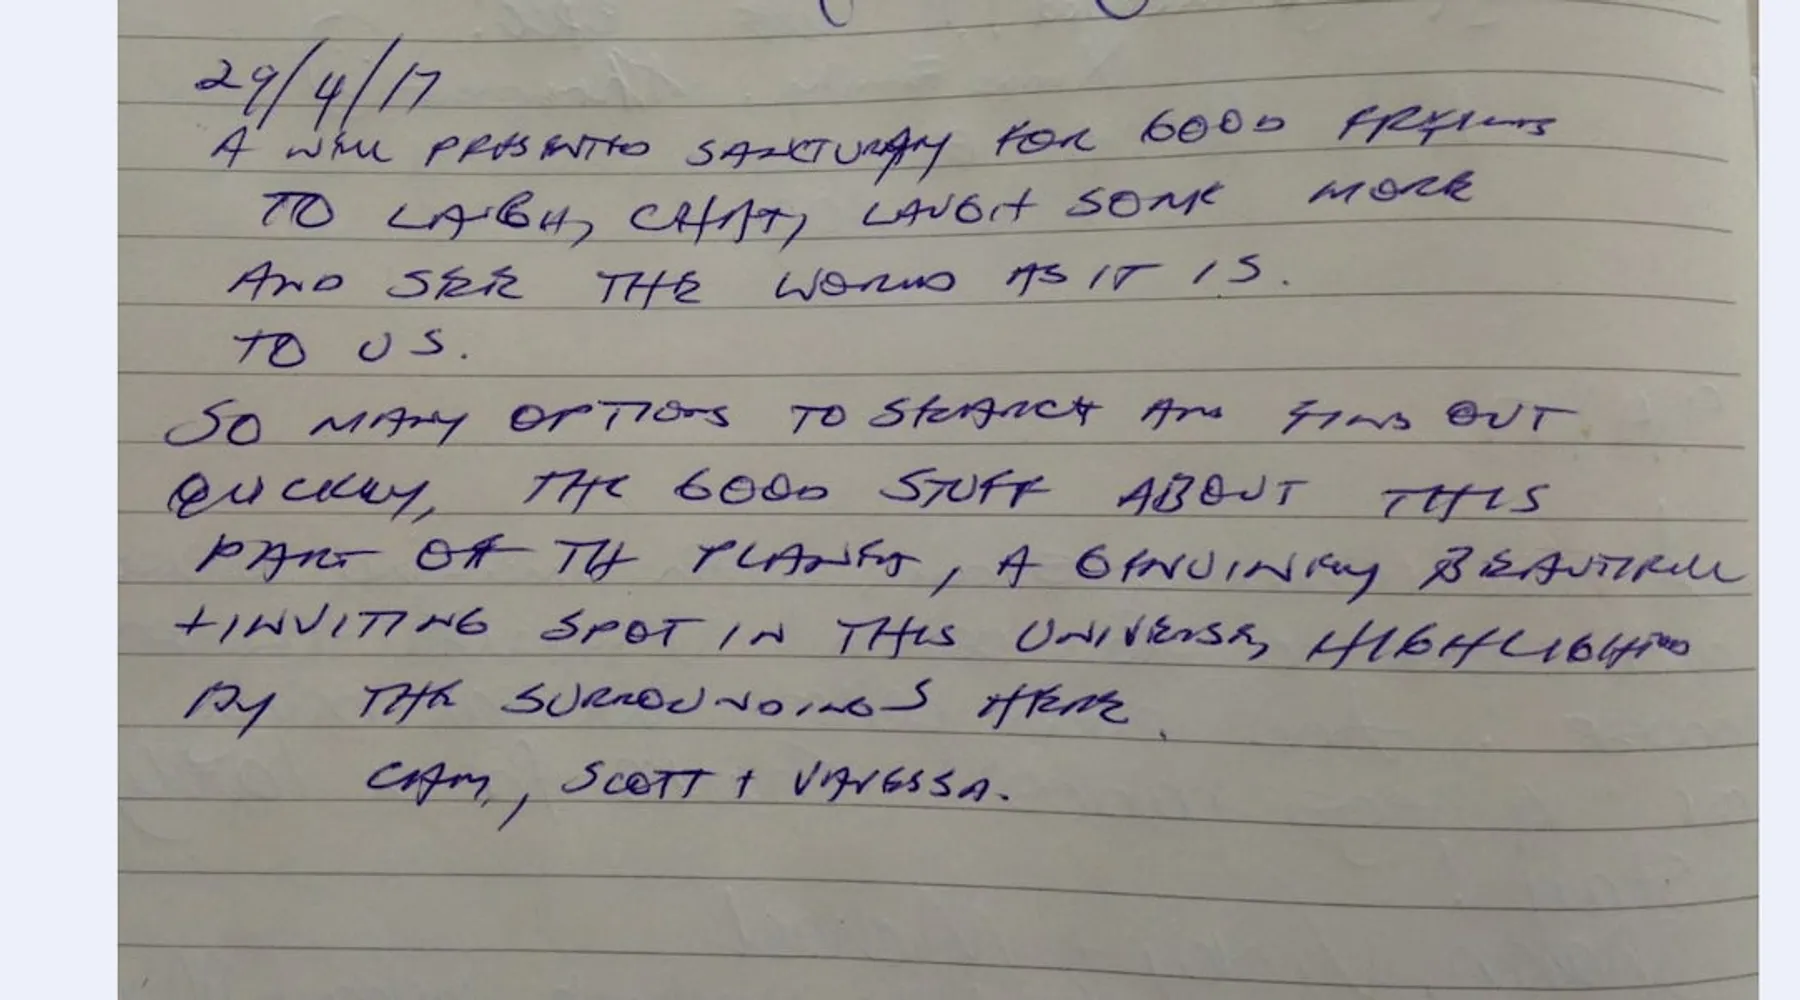 29/4/17
A WELL PRESENTED SANCTURARY FOR GOOD FRIENDS
TO LAUGH, CHAT, LAUGH SOME MORE
AND SEE THE WORLD AS IT IS.
TO US.
SO MANY OPTIONS TO SEARCH AND FIND OUT
QUICKLY, THE GOOD STUFF ABOUT THIS
PART OF TH PLANET, A GENUINELY BEAUTIFUL
+ INVITING SPOT IN THIS UNIVERSE, HIGHLIGHTED
BY THE SURROUNDINGS HERE.
CAM, SCOTT + VANESSA.